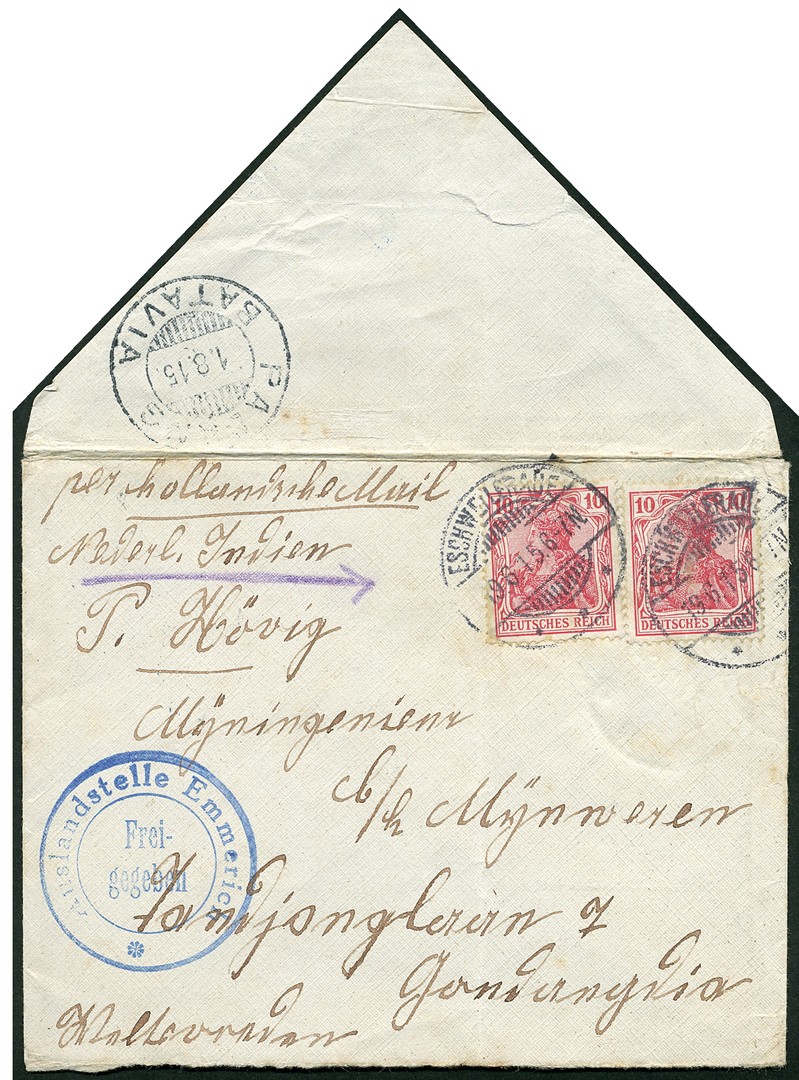 BATAVIA
1.8.15.
per hollandsche Mail
Nederl. Indien
P. Hövig
Mÿningenieur
b/h Mÿnweren
Tandjonglaan 7
Gondangdia
Weltevreden
10 10
DEUTSCHES REICH
10 10
DEUTSCHES REICH
Auslandstelle Emmerich
Frei-
gegeben